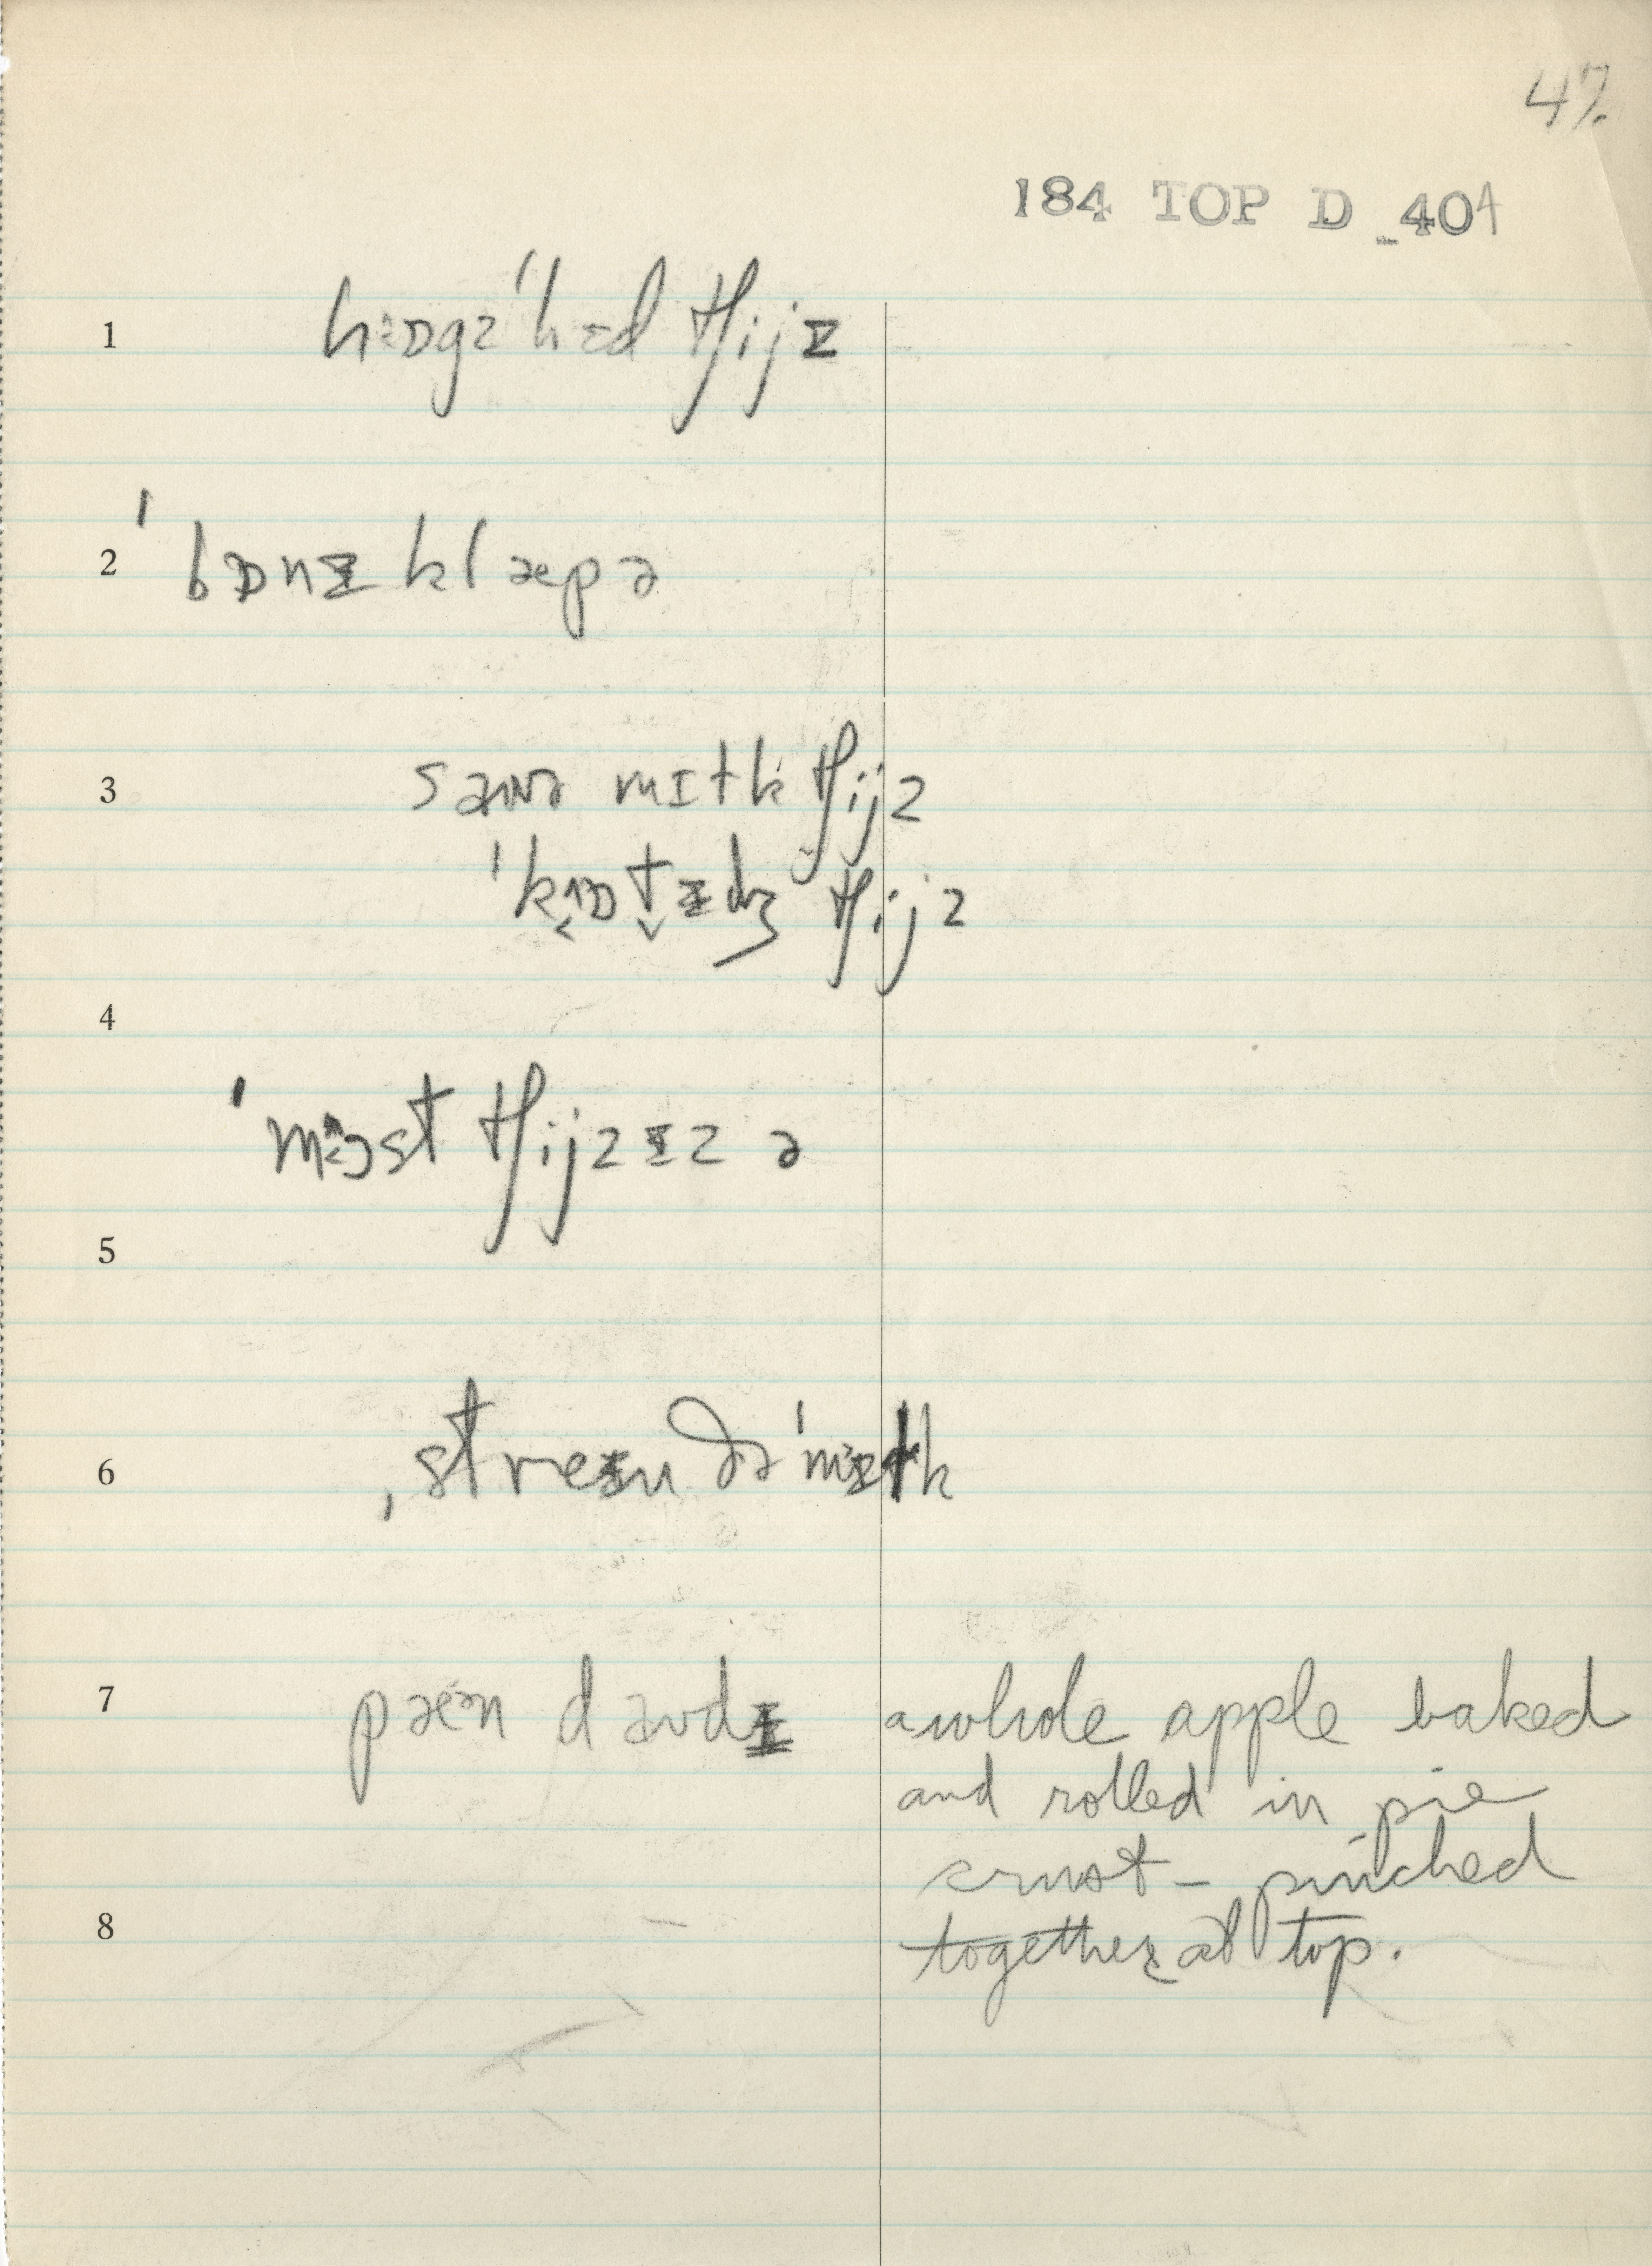 47.
184 TOP D 404
1 hɒgz'hɛd tʃijz
2 'bɒnɪklæpə
3 saʊə mɪlk tʃijz
'kɒtɪdʒ tʃijz
4
'mɔst tʃijzɪz ə
5
6 ˌstreɪn ðə'mɪlk
7 pæən daʊdɪ a whole apple baked
and rolled in pie
crust – pinched
8 together at top.